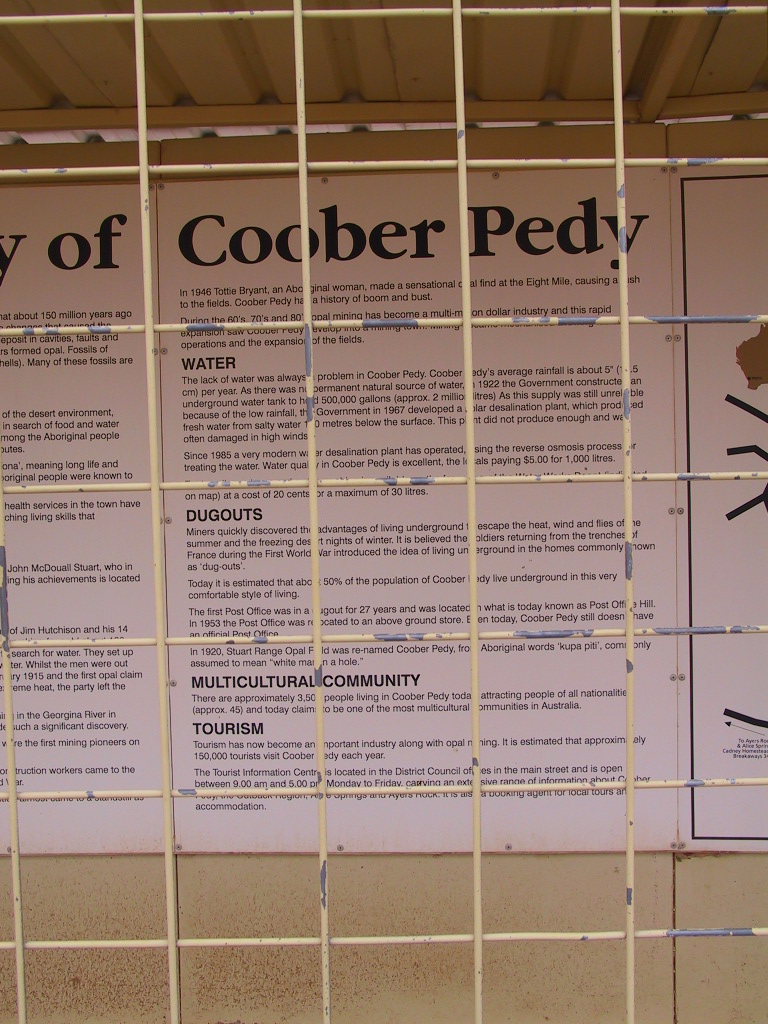 y of Coober Pedy
about 150 million years ago
deposit in cavities, faults and
formed opal. Fossils of
Many of these fossils are
of the desert environment,
in search of food and water
among the Aboriginal people
meaning long life and
people were known to
health services in the town have
living skills that
John McDouall Stuart, who in
his achievements is located
of Jim Hutchison and his 14
search for water. They set up
Whilst the men were out
1915 and the first opal claim
heat, the party left the
in the Georgina River in
such a significant discovery.
the first mining pioneers on
construction workers came to the
War.
to a standstill as
In 1946 Tottie Bryant, an Aboriginal woman, made a sensational opal find at the Eight Mile, causing a rush
to the fields. Coober Pedy has a history of boom and bust.
During the 60's, 70's and 80's opal mining has become a multi-million dollar industry and this rapid
expansion saw Coober Pedy develop into a mining town.
operations and the expansion of the fields.
WATER
The lack of water was always a problem in Coober Pedy. Coober Pedy's average rainfall is about 5" (12.5
cm) per year. As there was no permanent natural source of water, in 1922 the Government constructed an
underground water tank to hold 500,000 gallons (approx. 2 million litres) As this supply was still unreliable
because of the low rainfall, the Government in 1967 developed a solar desalination plant, which produced
fresh water from salty water metres below the surface. This plant did not produce enough and was
often damaged in high winds.
Since 1985 a very modern water desalination plant has operated, using the reverse osmosis process for
treating the water. Water quality in Coober Pedy is excellent, the locals paying $5.00 for 1,000 litres.
on map) at a cost of 20 cents for a maximum of 30 litres.
DUGOUTS
Miners quickly discovered the advantages of living underground to escape the heat, wind and flies of the
summer and the freezing desert nights of winter. It is believed the soldiers returning from the trenches of
France during the First World War introduced the idea of living underground in the homes commonly known
as 'dug-outs'.
Today it is estimated that about 50% of the population of Coober Pedy live underground in this very
comfortable style of living.
The first Post Office was in a dugout for 27 years and was located in what is today known as Post Office Hill.
In 1953 the Post Office was relocated to an above ground store. Even today, Coober Pedy still doesn't have
an official Post Office.
In 1920, Stuart Range Opal Field was re-named Coober Pedy, from Aboriginal words 'kupa piti', commonly
assumed to mean "white man in a hole."
MULTICULTURAL COMMUNITY
There are approximately 3,500 people living in Coober Pedy today attracting people of all nationalities
(approx. 45) and today claims to be one of the most multicultural communities in Australia.
TOURISM
Tourism has now become an important industry along with opal mining. It is estimated that approximately
150,000 tourists visit Coober Pedy each year.
The Tourist Information Centre is located in the District Council offices in the main street and is open
between 9.00 am and 5.00 pm Monday to Friday, carrying an extensive range of information about Coober
Pedy, the Outback Region, Alice Springs and Ayers Rock. It is also a booking agent for local tours and
accommodation.
To Ayers Rock
& Alice Springs
Cadney Homestead
Breakaways